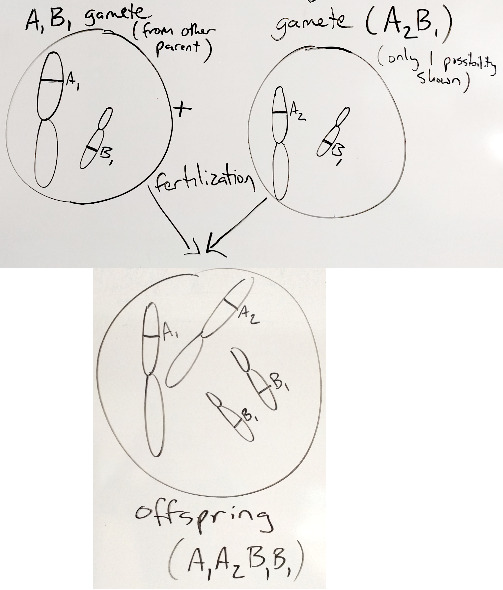 A₁B₁ gamete
(from other
parent)
gamete (A₂B₁)
(only 1 possibility
shown)
A₁
B₁
+
A₂
B₁
fertilization
A₁
A₂
B₁
B₁
offspring
(A₁A₂B₁B₁)